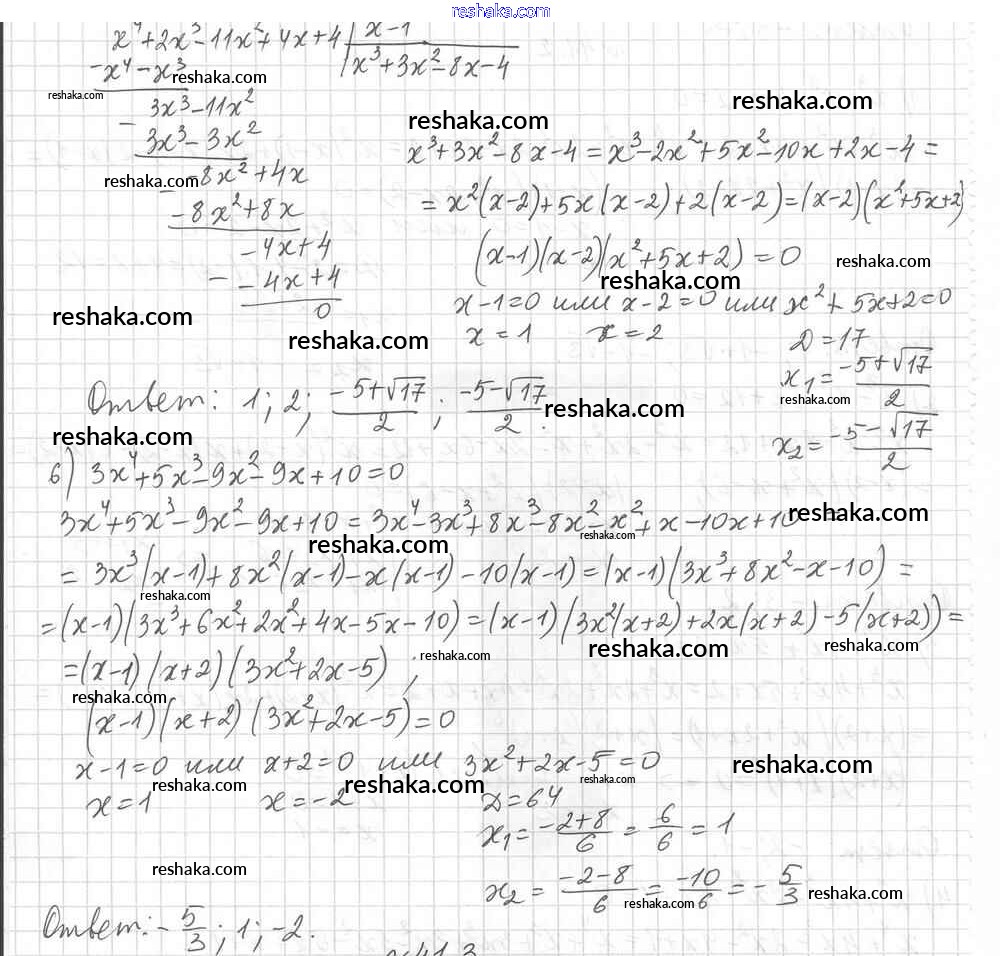 reshaka.com
x⁴+2x³-11x²+4x+4 | x-1
-x⁴-x³ | x³+3x²-8x-4
reshaka.com
reshaka.com
3x³-11x²
reshaka.com
- 3x³-3x²
reshaka.com
x³+3x²-8x-4=x³-2x²+5x²-10x+2x-4=
-8x²+4x
reshaka.com
=x²(x-2)+5x(x-2)+2(x-2)=(x-2)(x²+5x+2)
-8x²+8x
-4x+4
(x-1)(x-2)(x²+5x+2)=0
reshaka.com
- -4x+4
reshaka.com
0
x-1=0 или x-2=0 или x²+5x+2=0
reshaka.com
x=1 x=2 D=17
reshaka.com
x₁=(-5+√17)/2
reshaka.com
Ответ: 1; 2; (-5+√17)/2; (-5-√17)/2.
reshaka.com
x₂=(-5-√17)/2
reshaka.com
б) 3x⁴+5x³-9x²-9x+10=0
3x⁴+5x³-9x²-9x+10=3x⁴-3x³+8x³-8x²-x²+x-10x+10=
reshaka.com
reshaka.com
reshaka.com
=3x³(x-1)+8x²(x-1)-x(x-1)-10(x-1)=(x-1)(3x³+8x²-x-10)=
reshaka.com
=(x-1)(3x³+6x²+2x²+4x-5x-10)=(x-1)(3x²(x+2)+2x(x+2)-5(x+2))=
reshaka.com
reshaka.com
=(x-1)(x+2)(3x²+2x-5);
reshaka.com
(x-1)(x+2)(3x²+2x-5)=0
x-1=0 или x+2=0 или 3x²+2x-5=0
reshaka.com
reshaka.com
reshaka.com
reshaka.com
x=1 x=-2 D=64
x₁=(-2+8)/6=6/6=1
reshaka.com
x₂=(-2-8)/6=-10/6=-5/3
reshaka.com
reshaka.com
Ответ: -5/3; 1; -2.